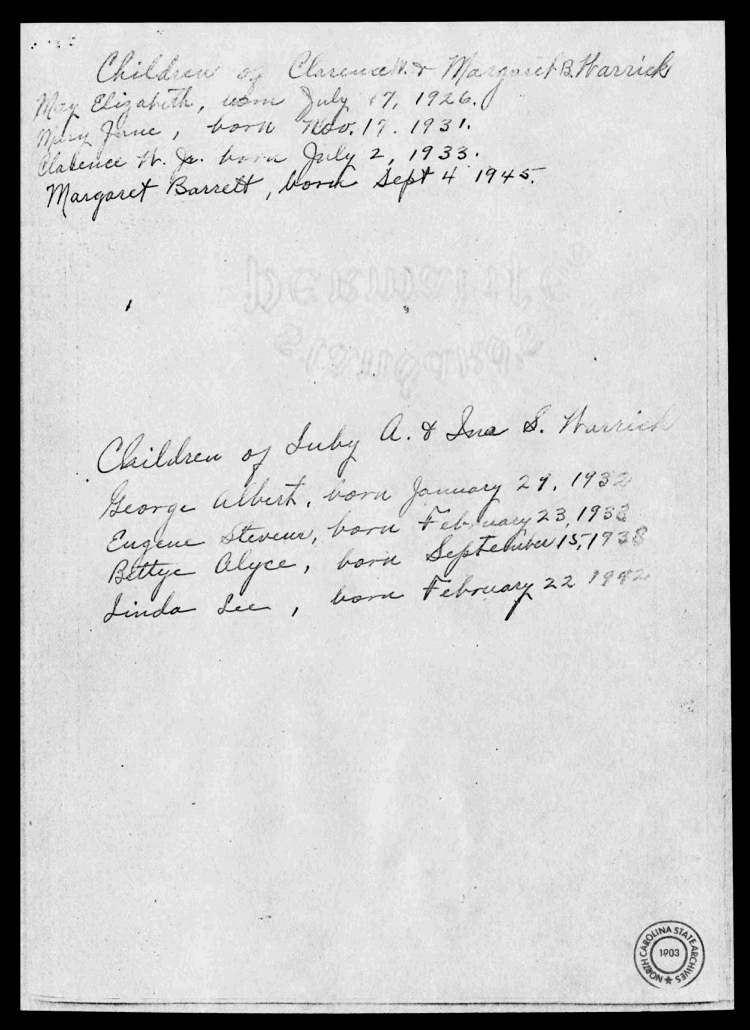 Children of Clarence W. & Margaret B. Warrick
May Elizabeth, born July 17, 1926.
Mary Jane, born Nov. 17. 1931.
Clarence W. Jr. born July 2, 1933.
Margaret Barrett, born Sept 4 1945.
Children of Luby A. & Ina S. Warrick
George Albert, born January 29, 1932
Eugene Stevens, born February 23, 1933
Bettye Alyce, born September 15, 1938
Linda Lee, born February 22 1942
NORTH CAROLINA STATE ARCHIVES
1903